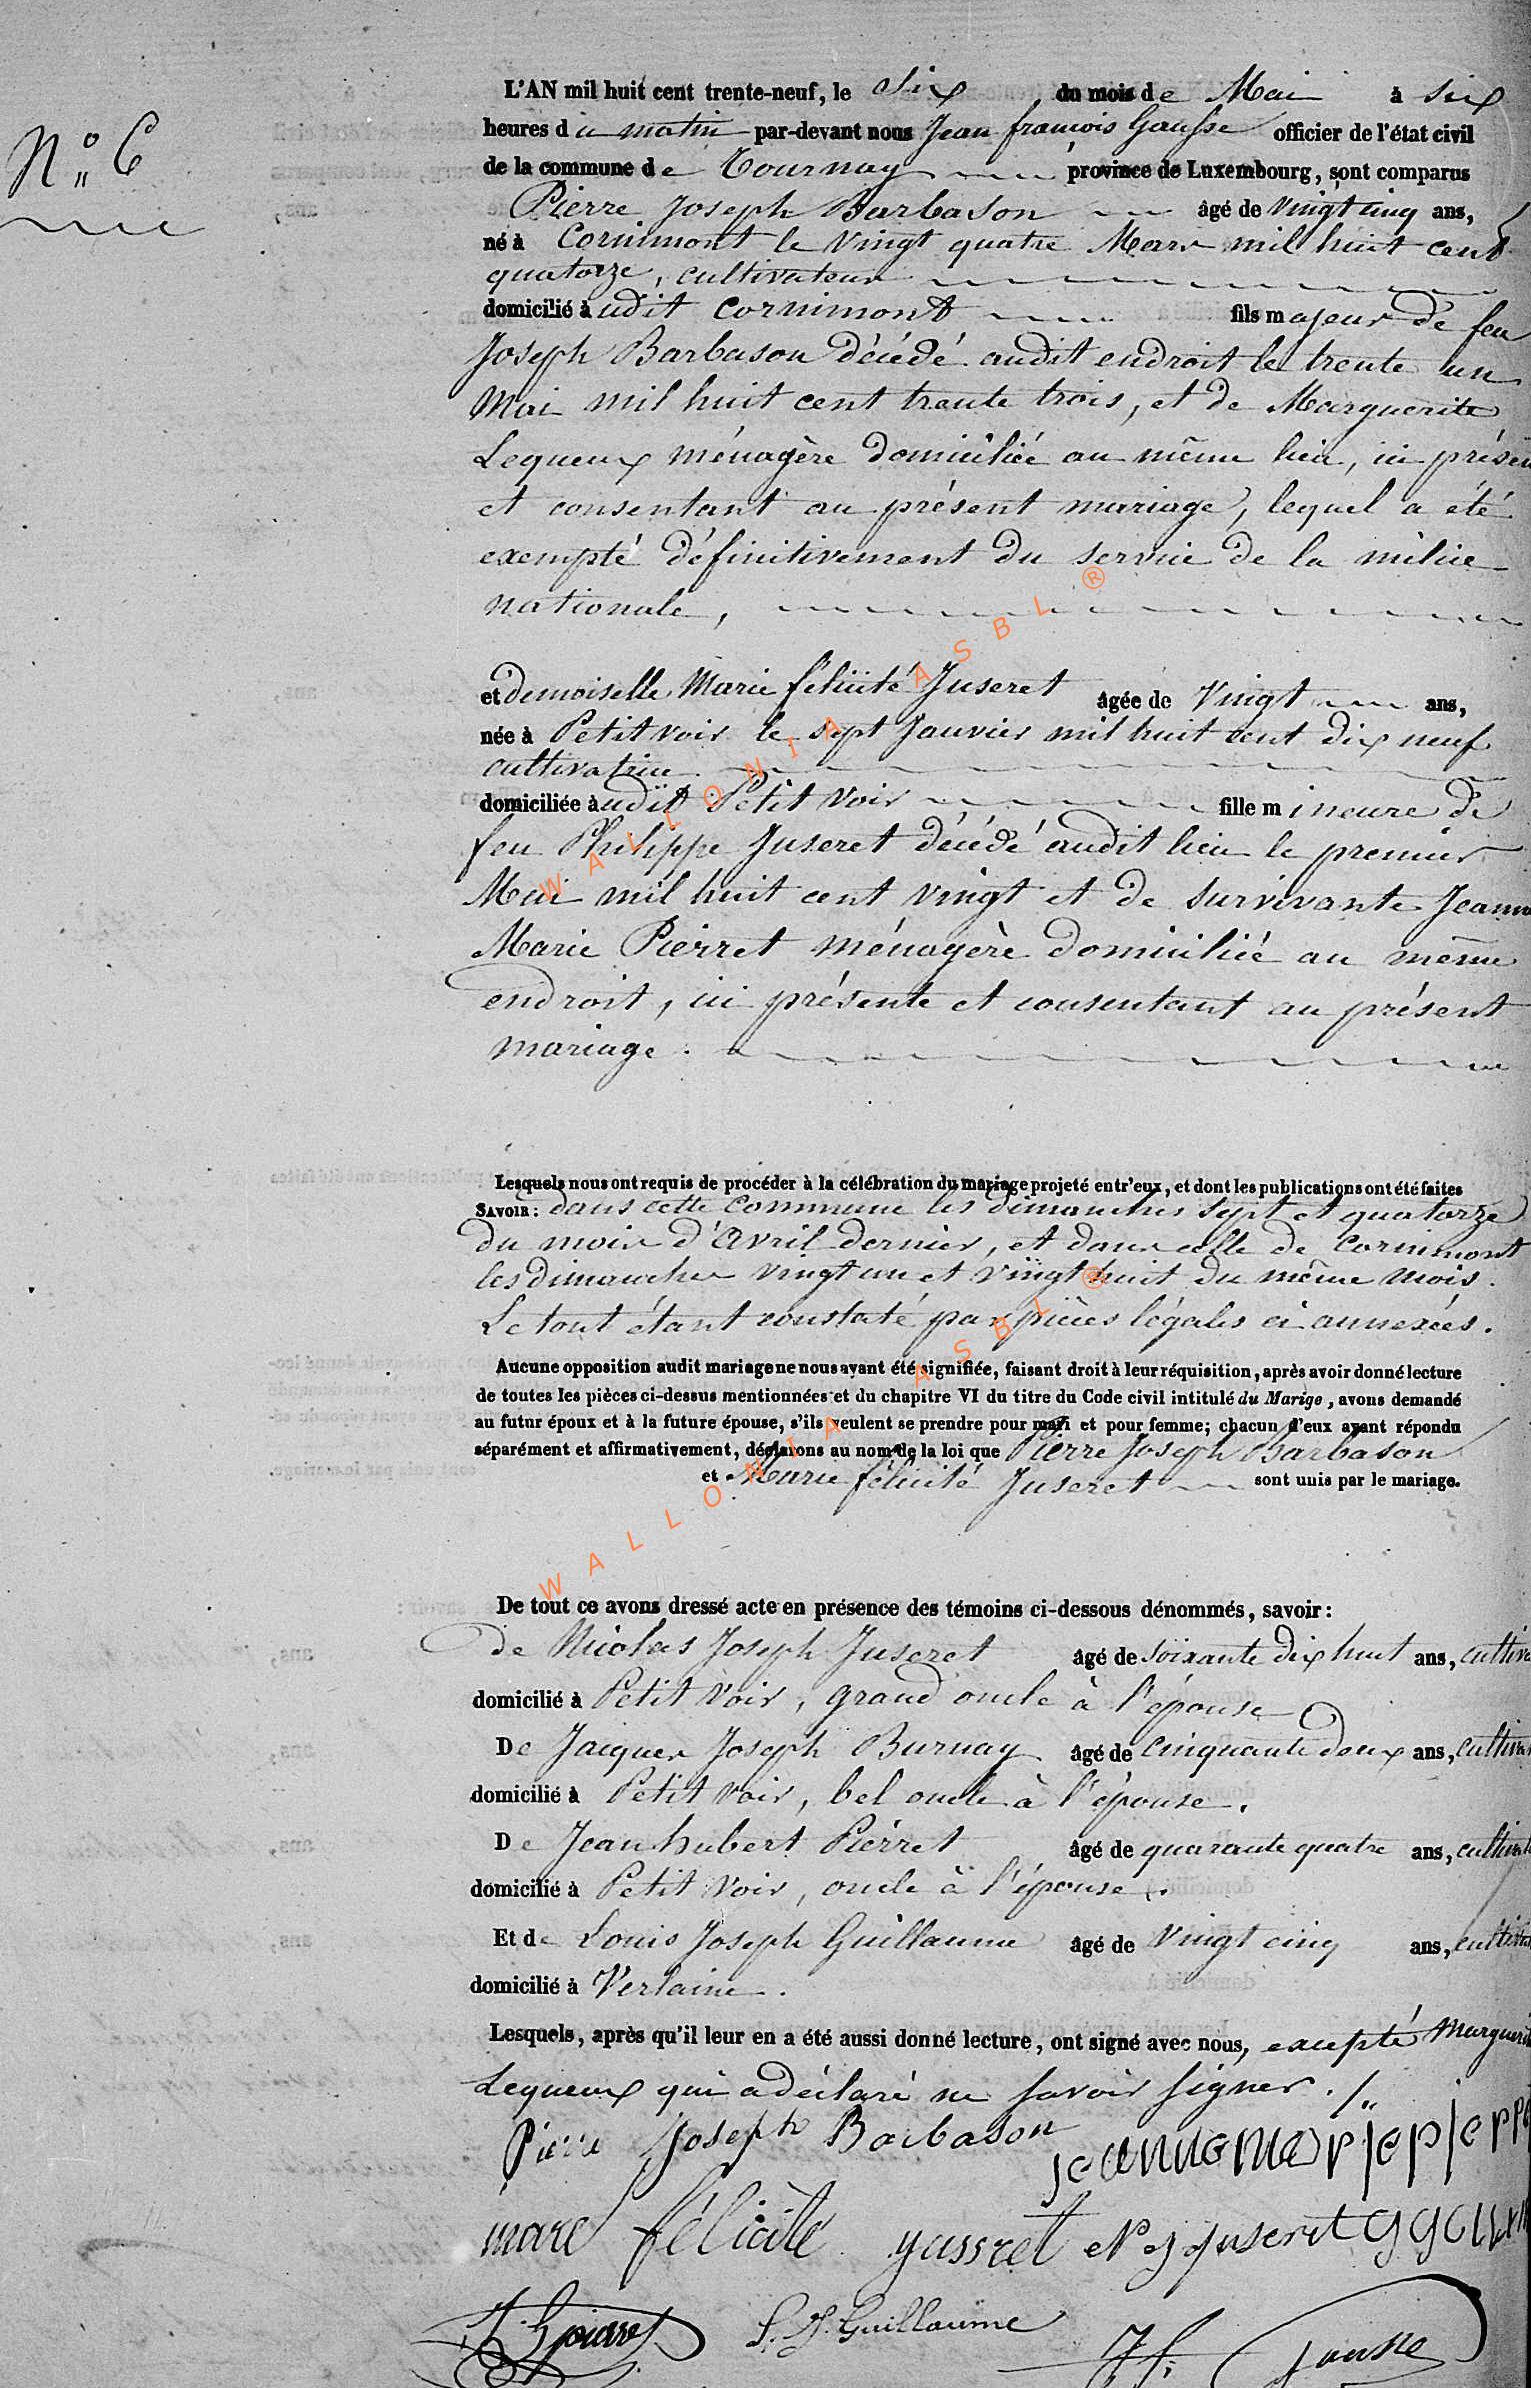 N° 6
L'AN mil huit cent trente-neuf, le Six du mois de Mai à six
heures du matin par-devant nous Jean françois Gausse officier de l'état civil
de la commune de Tournay province de Luxembourg, sont comparus
Pierre Joseph Barbason âgé de vingt cinq ans,
né à Cornimont le vingt quatre Mars mil huit cent
quatorze, cultivateur
domicilié àudit Cornimont fils majeur de feu
Joseph Barbason décédé audit endroit le trente un
Mai mil huit cent trente trois, et de Marguerite
Lequeux ménagère domiciliée au même lieu, ici présen
et consentant au présent mariage, lequel a été
exempté définitivement du service de la milice
nationale,
et demoiselle Marie félicité Juseret âgée de Vingt ans,
née à Petit voir le sept Janvier mil huit cent dix neuf
cultivatrice
domiciliée àudit Petit Voir fille mineure de
feu Philippe Juseret décédé audit lieu le premier
Mai mil huit cent vingt et de survivante Jeanne
Marie Pierret ménagère domiciliée au même
endroit, ici présente et consentant au présent
mariage.
Lesquels nous ont requis de procéder à la célébration du mariage projeté entr'eux, et dont les publications ont été faites
SAVOIR: dans cette commune les dimanches sept et quatorze
du mois d'Avril dernier, et dans celle de Cornimont
les dimanches vingt un et vingt huit du même mois.
Le tout étant constaté par pièces légales ci annexées.
Aucune opposition audit mariage ne nous ayant été signifiée, faisant droit à leur réquisition, après avoir donné lecture
de toutes les pièces ci-dessus mentionnées et du chapitre VI du titre du Code civil intitulé du Marige, avons demandé
au futur époux et à la future épouse, s'ils veulent se prendre pour mari et pour femme; chacun d'eux ayant répondu
séparément et affirmativement, déclarons au nom de la loi que Pierre Joseph Barbason
et Marie félicité Juseret sont unis par le mariage.
De tout ce avons dressé acte en présence des témoins ci-dessous dénommés, savoir:
de Nicolas Joseph Juseret âgé de soixante dix huit ans, cultiva
domicilié à Petit Voir, grand oncle à l'épouse
De Jacques Joseph Burnay âgé de cinquante deux ans, cultiva
domicilié à Petit Voir, bel oncle à l'épouse.
De Jean hubert Pierret âgé de quarante quatre ans, cultivat
domicilié à Petit Voir, oncle à l'épouse.
Et de Louis Joseph Guillaume âgé de Vingt cinq ans, cultivat
domicilié à Verlaine.
Lesquels, après qu'il leur en a été aussi donné lecture, ont signé avec nous, excepté Marguerite
Lequeux qui a déclaré ne savoir signer.
Pierre Joseph Barbason jeannemarjepjerr
marie félicité yussret N j juseret
J. h pierret L. J. Guillaume J. f. Gausse
WALLONIA ASBL ®
WALLONIA ASBL ®